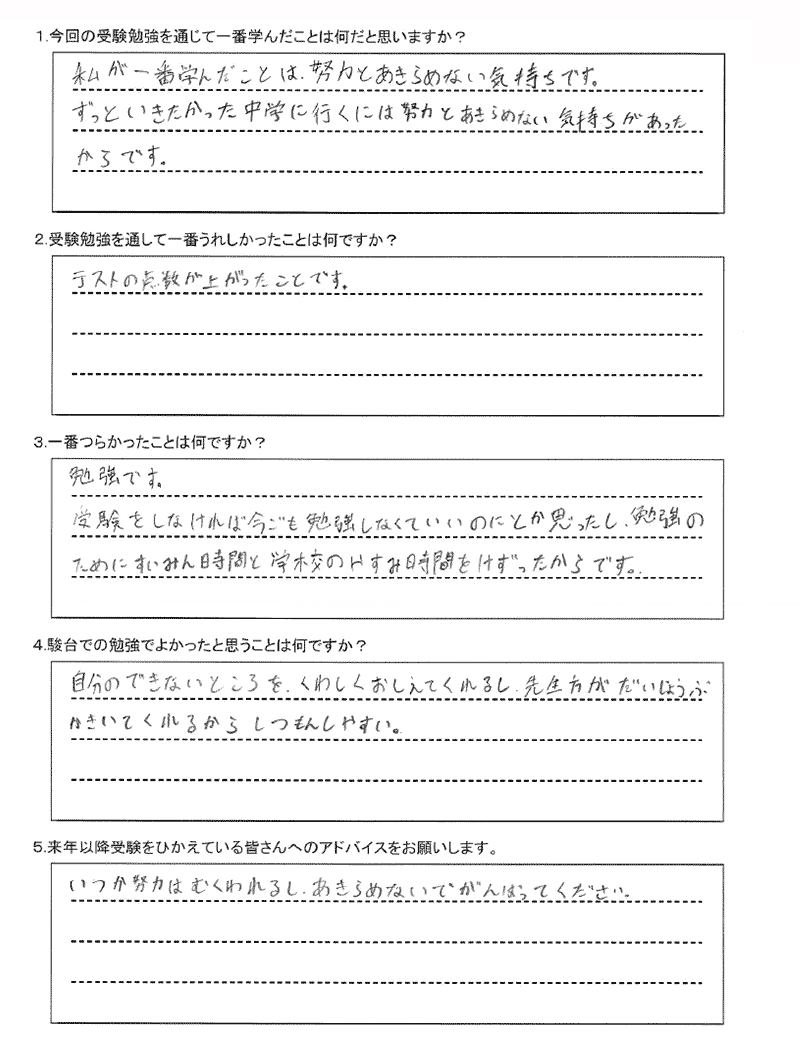 1.今回の受験勉強を通じて一番学んだことは何だと思いますか？
私が一番学んだことは、努力とあきらめない気持ちです。
ずっといきたかった中学に行くには努力とあきらめない気持ちがあった
からです。
2.受験勉強を通して一番うれしかったことは何ですか？
テストの点数が上がったことです。
3.一番つらかったことは何ですか？
勉強です。
受験をしなければ今ごも勉強しなくていいのにとか思ったし、勉強の
ためにすいみん時間と学校のやすみ時間をけずったからです。
4.駿台での勉強でよかったと思うことは何ですか？
自分のできないところを、くわしくおしえてくれるし、先生方がだいじょうぶ
かきいてくれるからしつもんしやすい。
5.来年以降受験をひかえている皆さんへのアドバイスをお願いします。
いつか努力はむくわれるし、あきらめないでがんばってください。